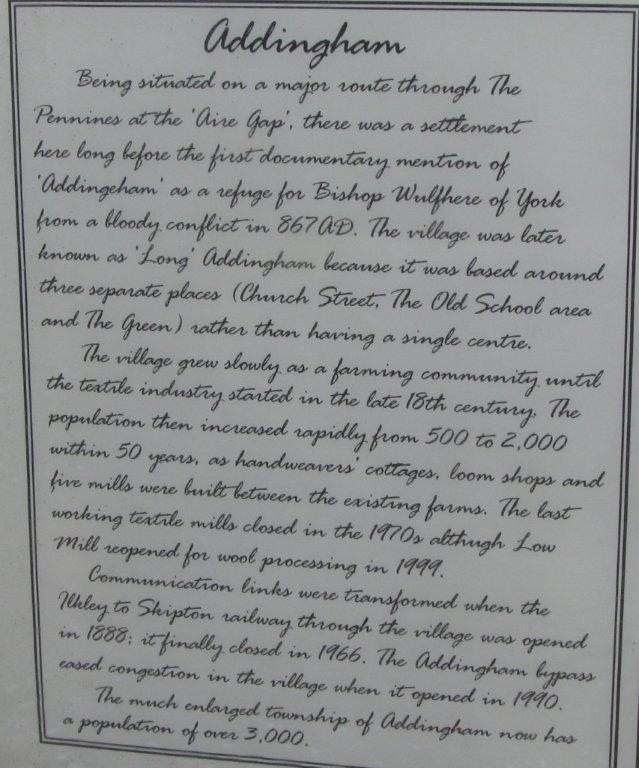 Addingham
Being situated on a major route through The
Pennines at the 'Aire Gap', there was a settlement
here long before the first documentary mention of
'Addingeham' as a refuge for Bishop Wulfhere of York
from a bloody conflict in 867AD. The village was later
known as 'Long' Addingham because it was based around
three separate places (Church Street, The Old School area
and The Green) rather than having a single centre.
The village grew slowly as a farming community until
the textile industry started in the late 18th century. The
population then increased rapidly from 500 to 2,000
within 50 years, as handweavers' cottages, loom shops and
five mills were built between the existing farms. The last
working textile mills closed in the 1970s althugh Low
Mill reopened for wool processing in 1999.
Communication links were transformed when the
Ilkley to Skipton railway through the village was opened
in 1888; it finally closed in 1966. The Addingham bypass
eased congestion in the village when it opened in 1990.
The much enlarged township of Addingham now has
a population of over 3,000.